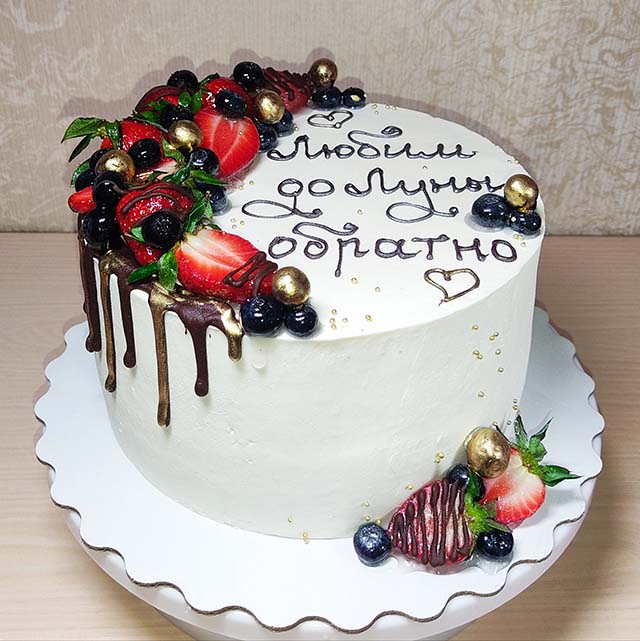 Любим
до Луны
обратно